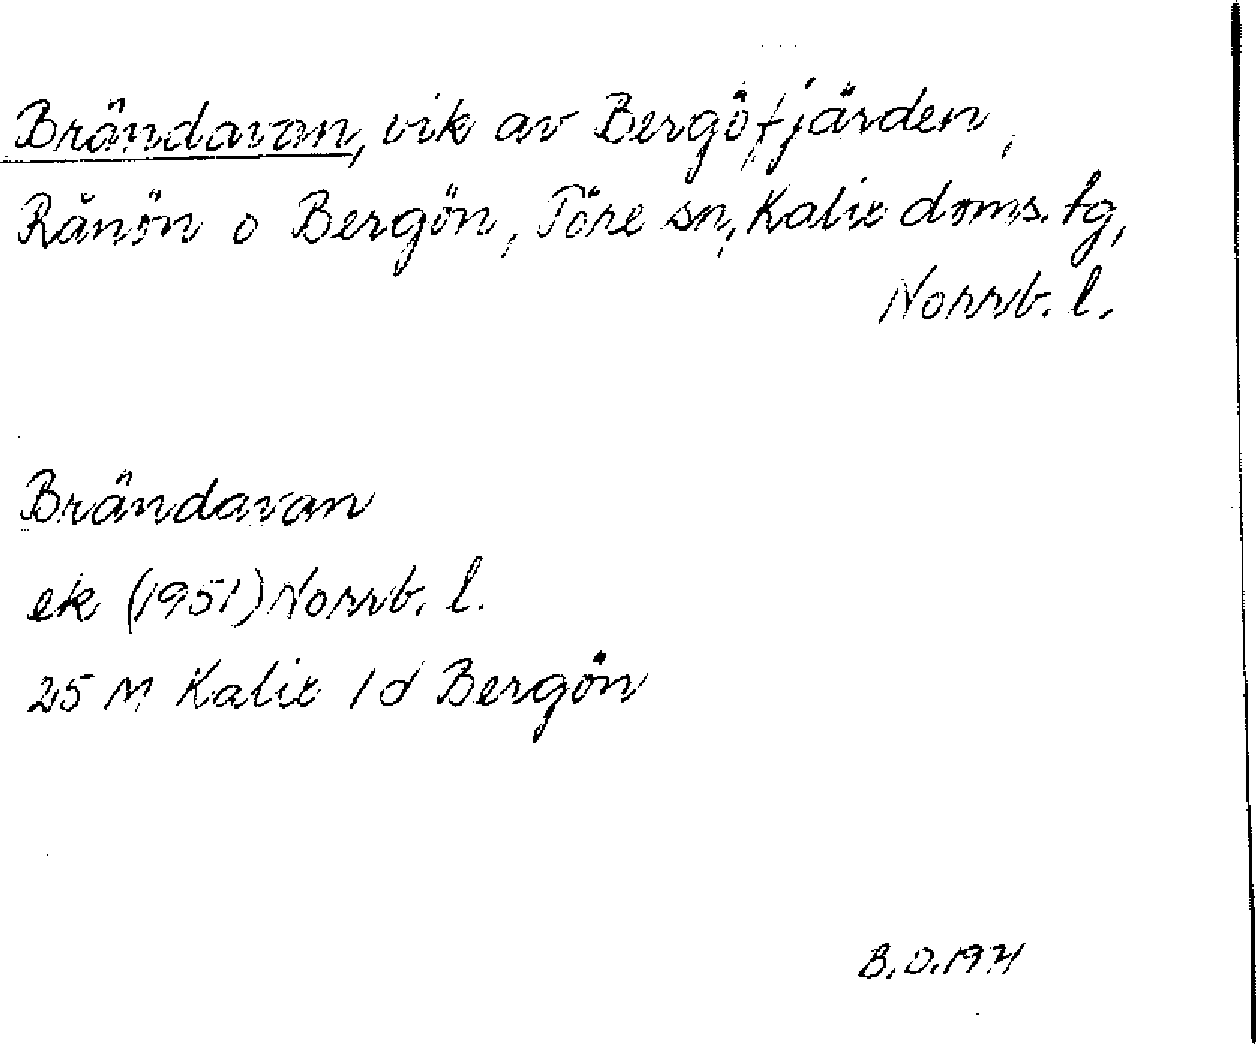 Brändavan, vik av Bergöfjärden,
Rånön o Bergön, Töre sn, Kalix doms. tg,
Norrb. l.
Brändavan
ek (1951) Norrb. l.
25 M Kalix 1d Bergön
B.O.1971